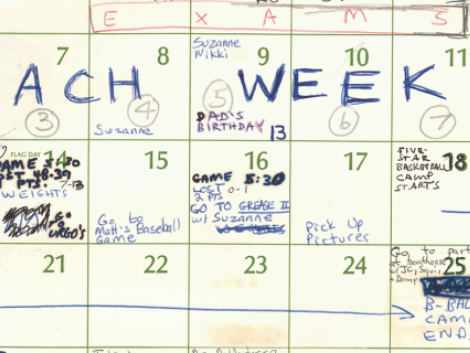 E X A M S
7 8 9 10 11
Suzanne
Nikki
ACH WEEK
3 4 5 6 7
Suzanne
DAD'S
BIRTHDAY 13
14 15 16 17 18
FLAG DAY
GAME 5:30
LOST 48-39
PTS: 7-13
WEIGHTS
GO
Go to
Matt's Baseball
Game
GAME 5:30
LOST 0-1
2 PTS
GO TO GREASE II
w/ Suzanne
Pick Up
Pictures
FIVE-
STAR
BASKETBALL
CAMP
STARTS
21 22 23 24 25
Go to part
at boathouse
w/ JC, Squi
B-BAL
CAM
END